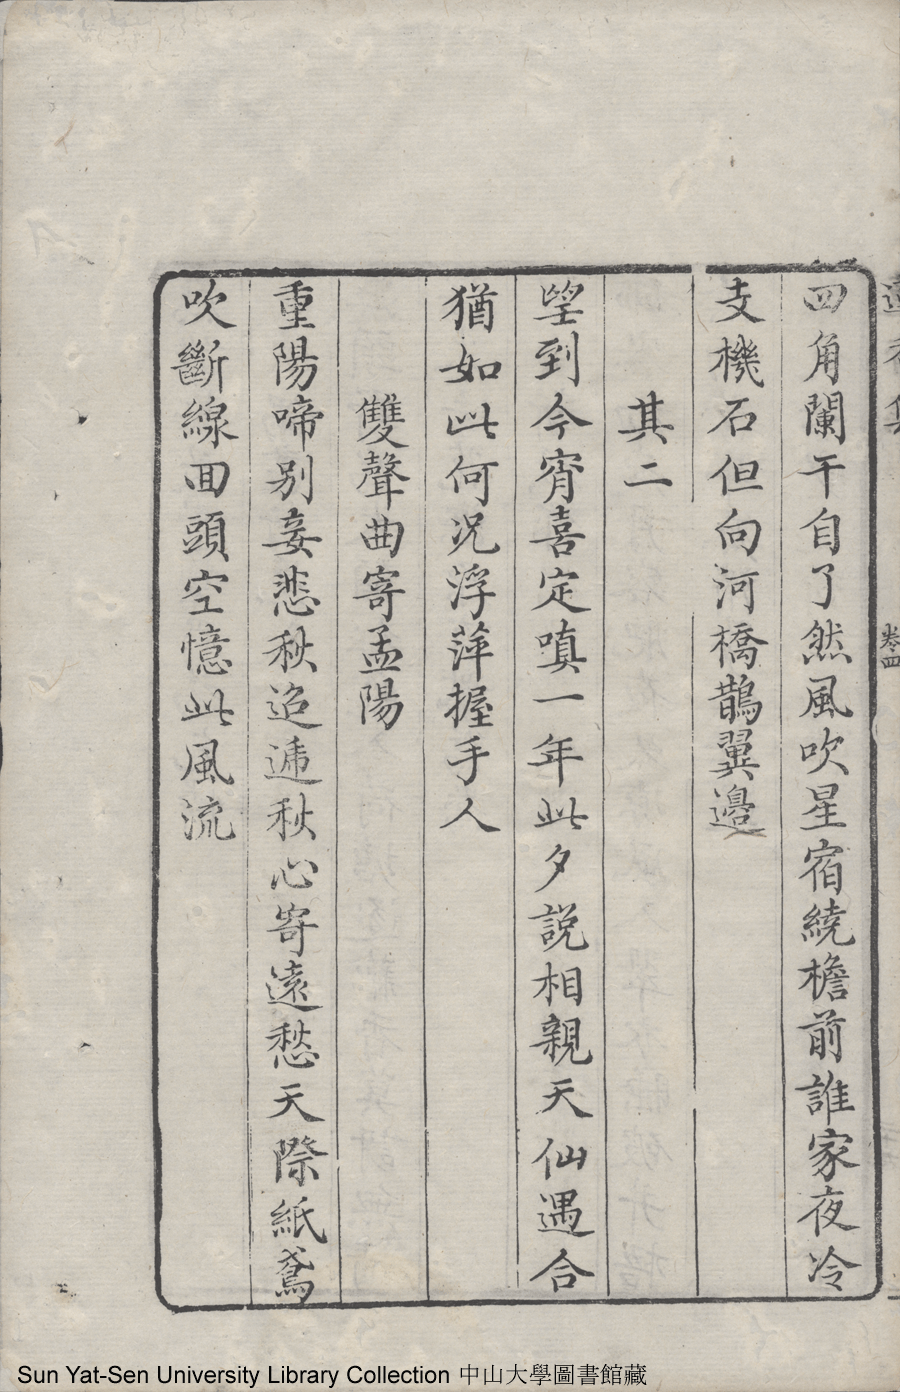 四角闌干自了然風吹星宿繞檐前誰家夜冷
支機石但向河橋鵲翼邊
其二
朢到今宵喜定嗔一年此夕説相親天仙遇合
猶如此何况浮萍握手人
雙聲曲寄孟陽
重陽啼别妾悲秋迢遞秋心寄遠愁天際紙鳶
吹斷線回頭空憶此風流
卷四
Sun Yat-Sen University Library Collection 中山大學圖書館藏